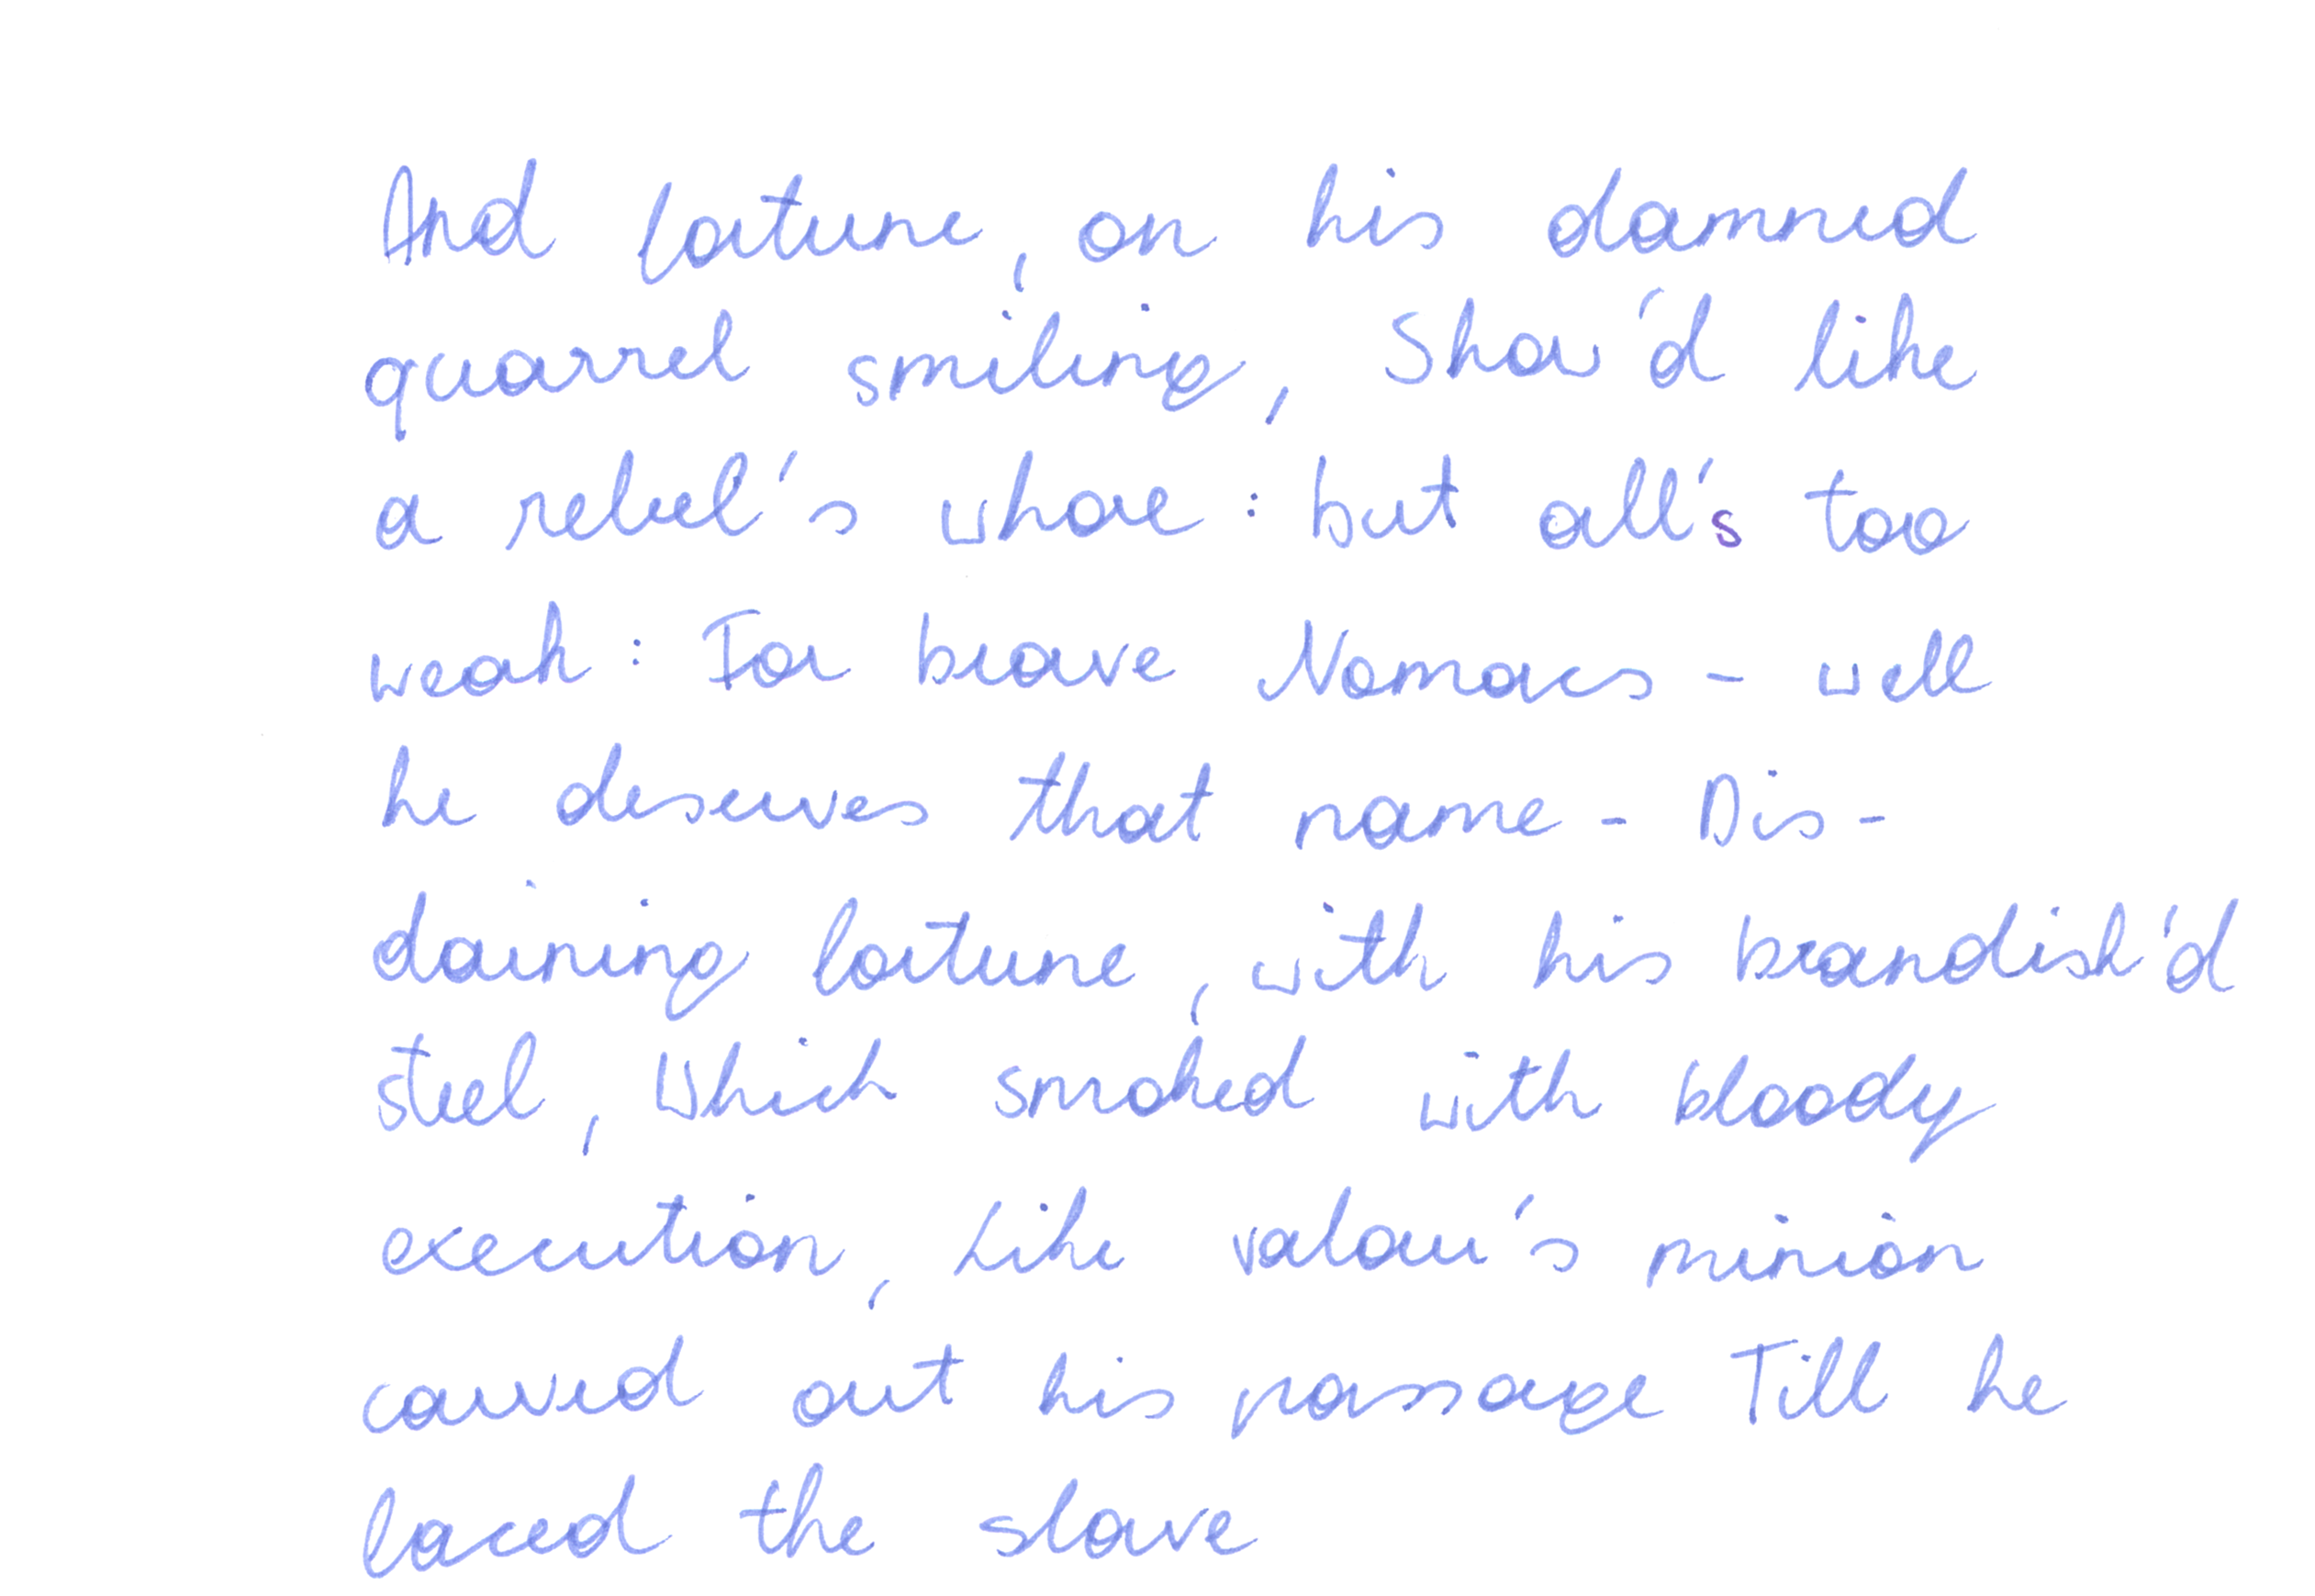 And fortune, on his damned
quarrel smiling, Show'd like
a rebel's whore : but all's too
weak : For brave Nomacs - well
he deserves that name - Dis-
daining fortune, with his brandish'd
steel, Which smoked with bloody
execution, Like valour's minion
carved out his passage Till he
faced the slave